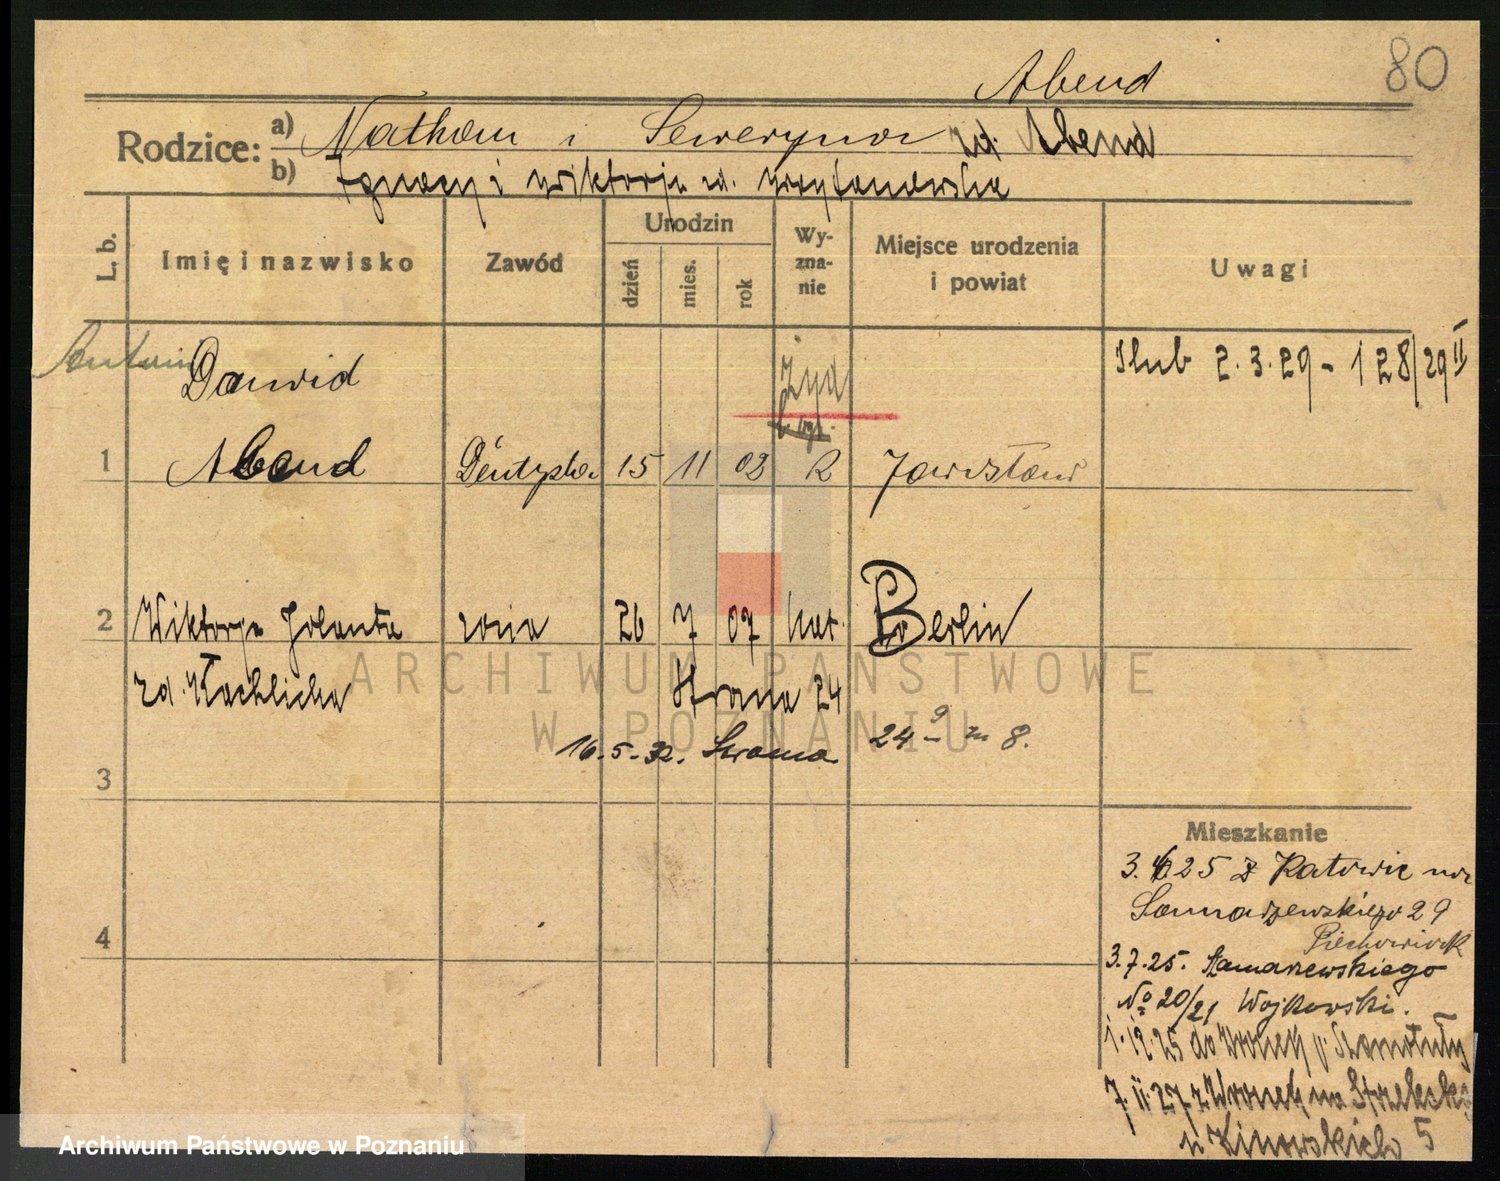 80
Abend
Rodzice: a) Nathan i Seweryna zd. Abend
b) Ignacy i Wiktorja zd.
L. b. Imię i nazwisko Zawód Urodzin dzień mies. rok Wyznanie Miejsce urodzenia i powiat Uwagi
Dawid Żyd Ślub 2.3.29 - 128/29 II
1 Abend Dentysta 15 11 02 R Jarosław
2 Wiktorja Jolanta żona 26 7 07 kat. Berlin
zd. 24
16.5.32. 24 m 8.
3
Mieszkanie
3.25 z Katowic na
Samarzewskiego 29
4
Piechowiak
3.7.25. Samarzewskiego
No 20/21 Wojkowski.
1.12.25 do Wronek p. Szamotuły
7.II.27 z Wronek na Strzelecką
5
ARCHIWUM PAŃSTWOWE
W POZNANIU
Archiwum Państwowe w Poznaniu